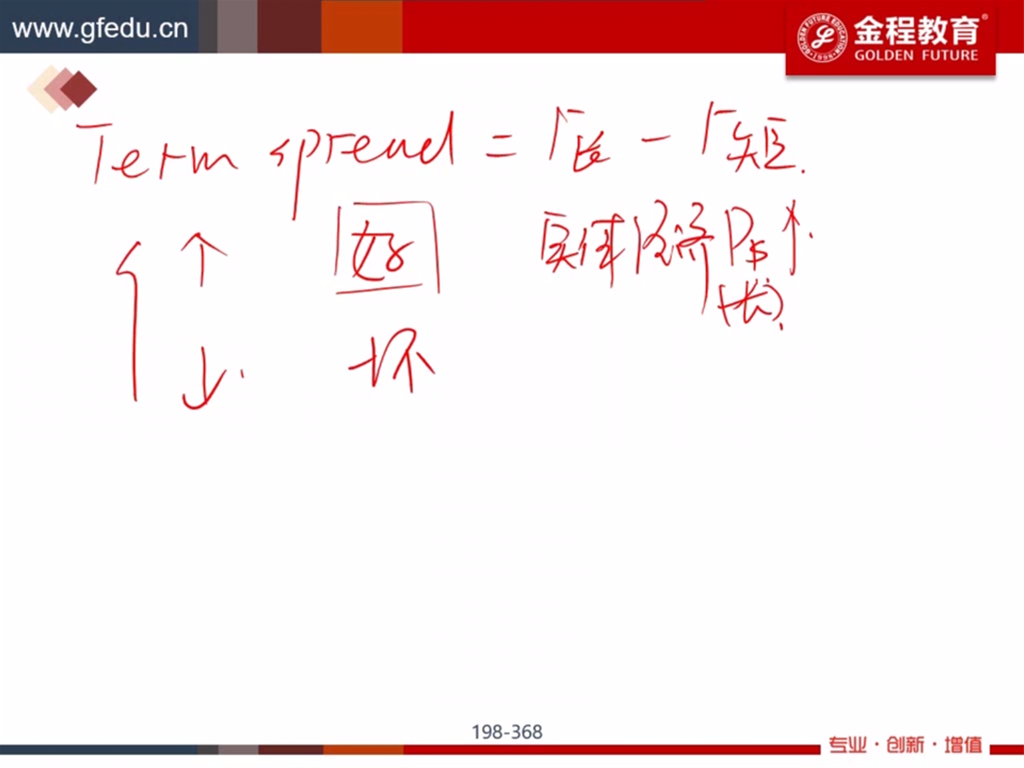 www.gfedu.cn
金程教育®
GOLDEN FUTURE
Term spread = r长 - r短.
↑ 好 实体经济
(长).
↓. 坏
198-368
专业·创新·增值